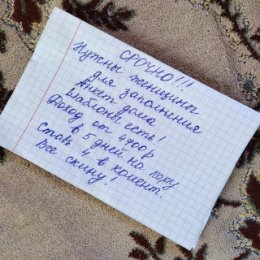 СРОЧНО!!!
Нужны женщины
для заполнения
Анкет дома
Шаблоны есть!
Доход от 4700р
в 5 дней на пару
Ставь 4 в комент.
Все скину.